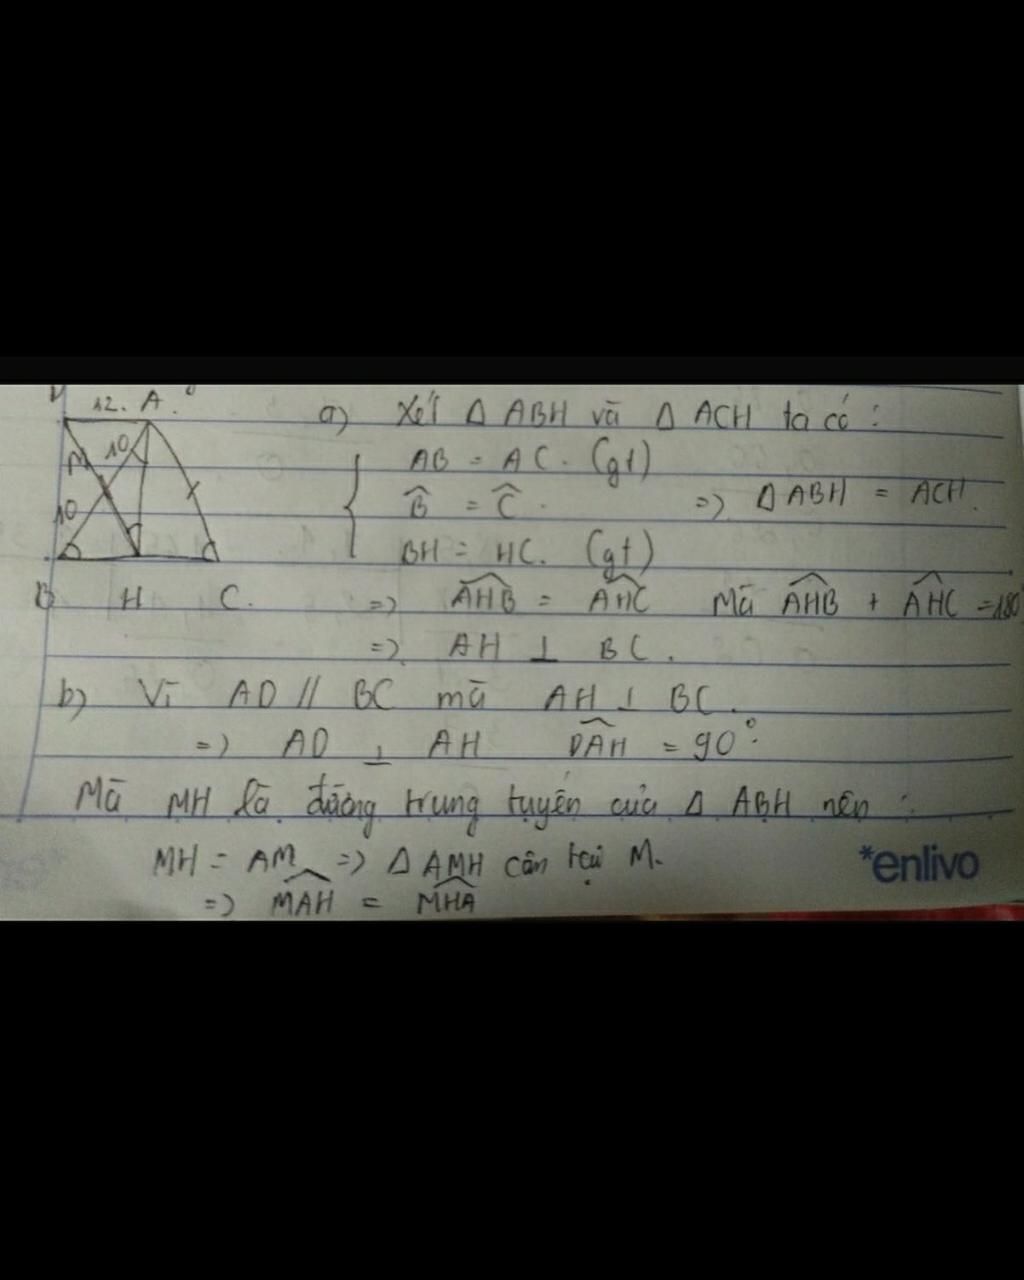 12. A.
a) Xét Δ ABH và Δ ACH ta có :
10
AB = AC. (gt)
M
B̂ = Ĉ. => Δ ABH = ACH.
10
BH = HC. (gt)
B H C. => AHB = AHC Mà AHB + AHC = 180°
=> AH ⊥ BC.
b) Vì AD // BC mà AH ⊥ BC.
=> AD ⊥ AH DAH = 90°.
Mà MH là đường trung tuyến của Δ ABH nên :
MH = AM => Δ AMH cân tại M.
=> MAH = MHA
*enlivo